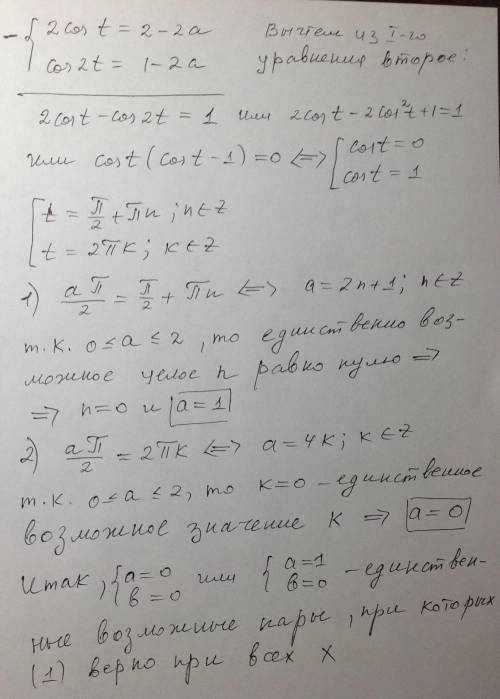 - { 2cos t = 2 - 2a        Вычтем из I-го
cos 2t = 1 - 2a        уравнения второе:
2cos t - cos 2t = 1 или 2cos t - 2cos²t + 1 = 1
или cos t (cos t - 1) = 0 <=> [ cos t = 0
cos t = 1
[ t = π/2 + πn ; n ∈ Z
t = 2πk ; k ∈ Z
1) aπ/2 = π/2 + πn <=> a = 2n+1 ; n ∈ Z
т.к. 0 ≤ a ≤ 2 , то единственно воз-
можное целое n равно нулю =>
=> n=0 и a = 1
2) aπ/2 = 2πk <=> a = 4k ; k ∈ Z
т.к. 0 ≤ a ≤ 2, то k=0 - единственное
возможное значение k => a = 0
Итак, { a = 0 или { a = 1 - единствен-
в = 0        в = 0
ные возможные пары, при которых
(1) верно при всех x